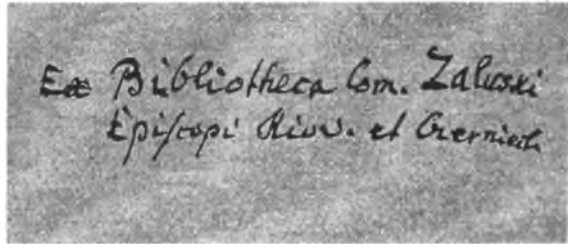 Ex Bibliotheca Com. Zaluski
Episcopi Kiov. et Czerniech.